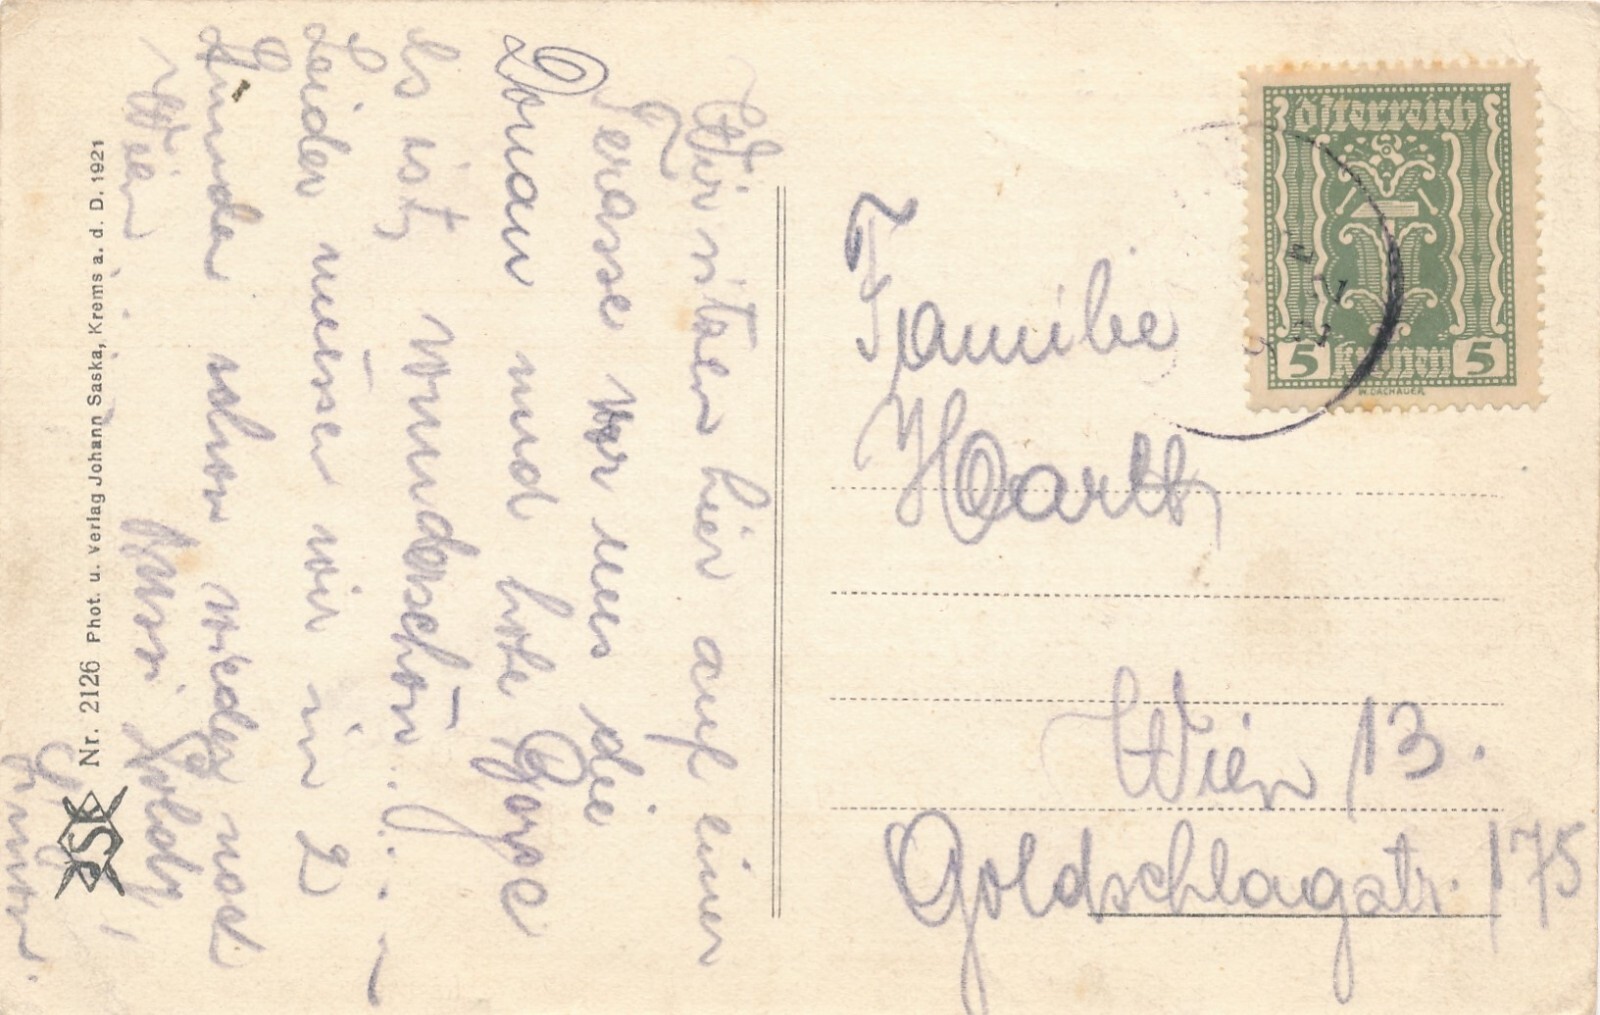 Wir sitzen hier auf einer
Terasse vor uns die
Donau und hohe Berge
Es ist wunderschön...
Leider müssen wir in 2
Stunden schon wieder nach
Wien...
Bussi Poldy
Simon.
Nr. 2126 Phot. u. Verlag Johann Saska, Krems a. d. D. 1921
JSK
österreich
5 kronen 5
W. DACHAUER
Familie
Hartl
Wien 13.
Goldschlagstr. 175